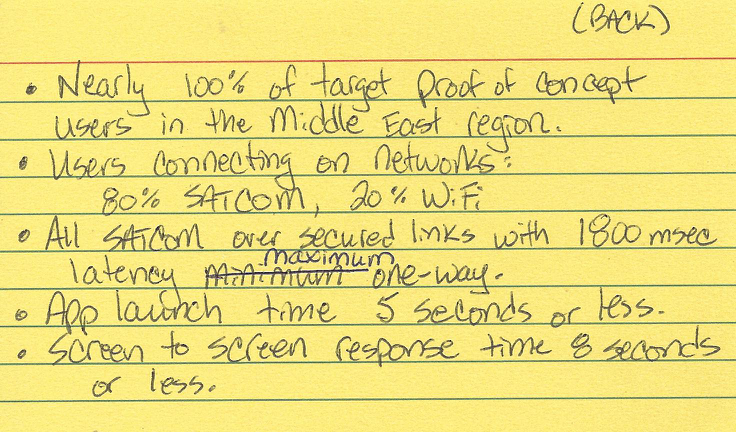 (BACK)
• Nearly 100% of target proof of concept
users in the Middle East region.
• Users connecting on networks:
80% SATCOM, 20% WiFi
• All SATCOM over secured links with 1800 msec
maximum
latency minimum one-way.
• App launch time 5 seconds or less.
• Screen to screen response time 8 seconds
or less.